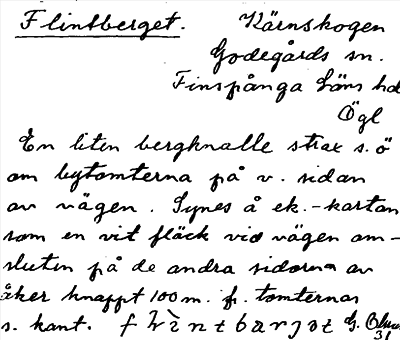 Flintberget. Kärnskogen
Godegårds sn.
Finspånga läns hd
Ögl
En liten bergknalle strax s.ö
om bytomterna på v. sidan
av vägen. Synes å ek.-kartan
som en vit fläck vid vägen om-
sluten på de andra sidorna av
åker knappt 100 m. fr. tomternas
s. kant. G.
31